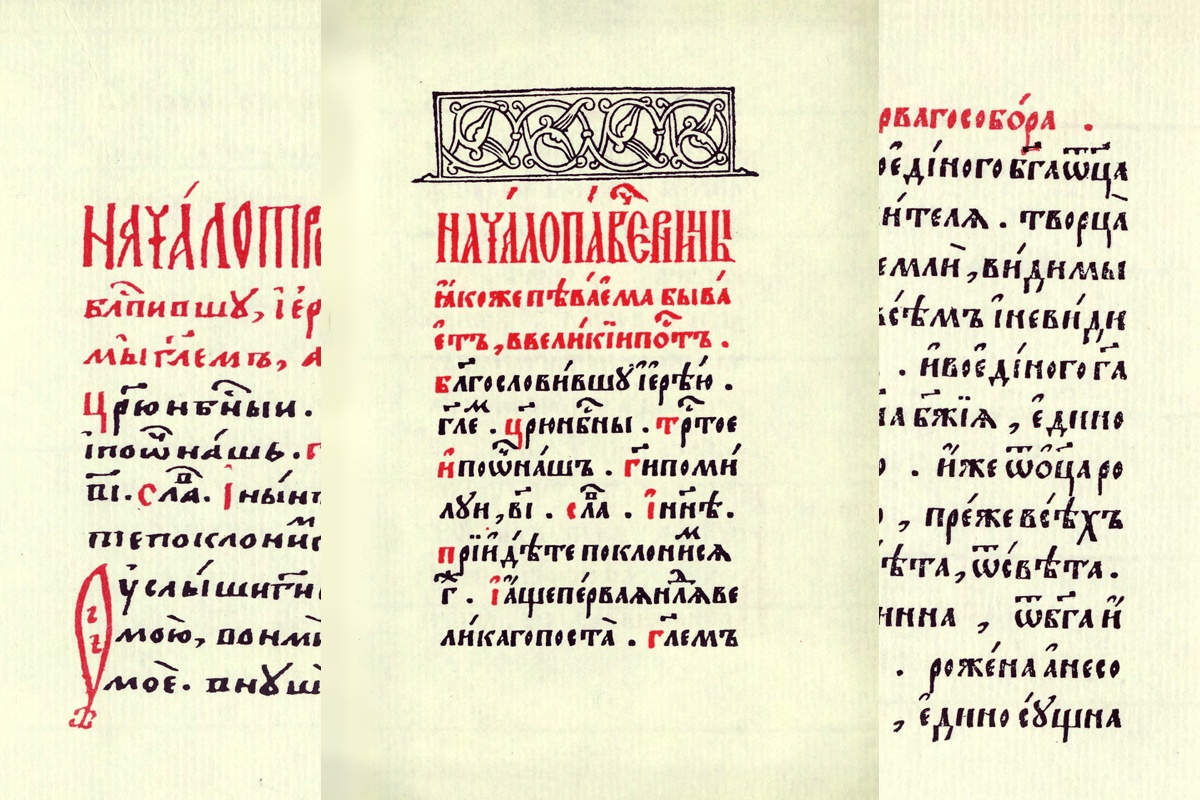 НАЧА́ЛОТР
бл҃ги́вшꙋ, і҆ер
мы̀ гл҃емъ, а
Цр҃ю нбⷭ҇ныи.
і҆ поѿ на́шь. г
вı҃. сла̑ⷡ. І҆ ны́н
поклони
ѹслы́ши гⷭ҇и
мою̀, вонми
мое̑. внꙋш
НАЧА́ЛО ПАВЕЧЕРНИЦЫ
ꙗ҆́коже пѣва́ема быва́
етъ, в вели́кїи по́стъ.
Бл҃гослови́вшꙋ і҆ере́ю.
гл҃еⷨ. цр҃ю нбⷭ҇ны. трⷭ҇тое
и҆ поѿ на́шъ. гⷭ҇и поми́
лꙋи, вı҃. слаⷡ. і҆ нн҃ѣ.
прїи҆дѣ́те поклони́ⷨся
г҃. і҆ а҆́ще пе́рваѧ нⷣлѧ ве
ли́каго поста̀. гл҃емъ
рваго собо́ра.
оедı́ного бг҃а ѻ҆ц҃а
и́телѧ. творца̀
емли̑, ви́димы
всѣ́мъ і҆ неви́ди
. и҆ во е҆ди́ного гⷭ҇а
на бж҃їѧ, е҆дино
. и҆́же ѿ ѻ҆ц҃а ро
, пре́же всѣ́хъ
ѣта, ѿ свѣ́та.
инна, ѿ бг҃а и҆
. роже́на а҆ несо
, е҆дино сꙋ́щна